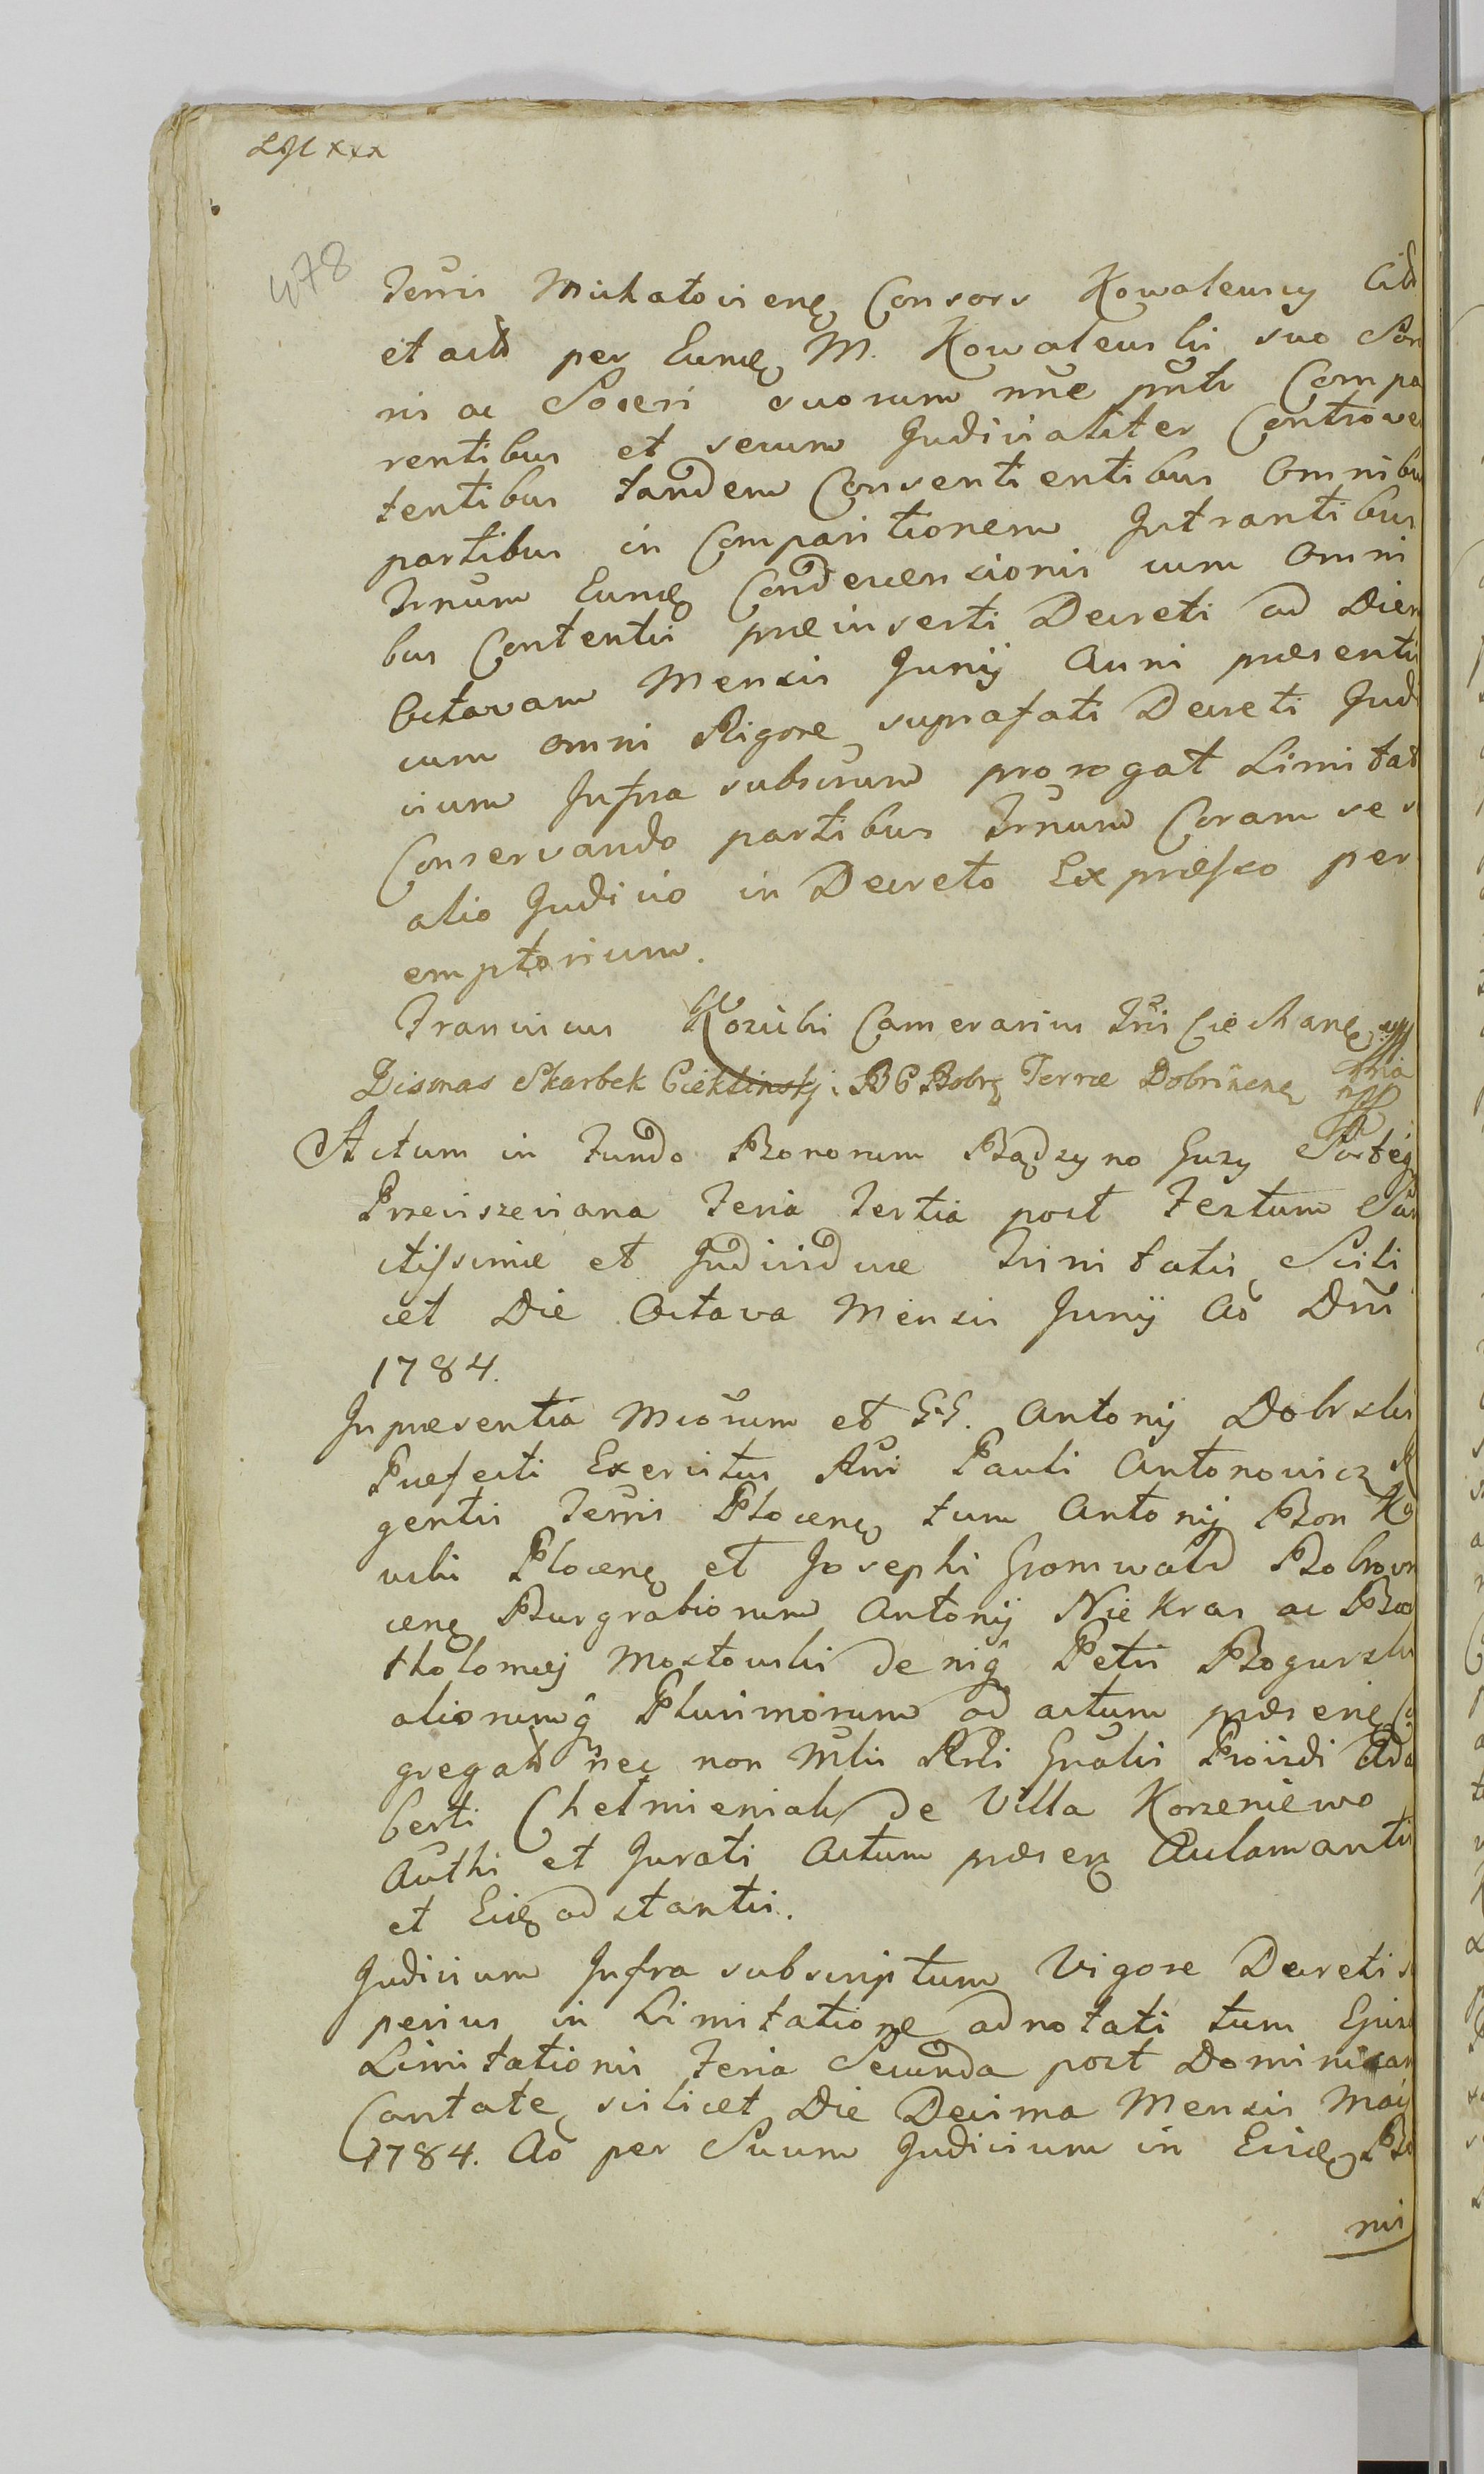 478
Terris Michaloviens Consors Kowalewscy
et act per Eund M. Kowalewski suo
ris ac Soceri suorum nunc pnti Compa
rentibus et secum Judicialiter Controver
tentibus tandem Consentientibus Omnibus
partibus in Comparitionem Intrantibus
Trnum Eund Condescensionis cum Omni
bus Contentis præinserti Decreti ad Diem
Octavam Mensis Junij Anni præsentis
cum omni Rigore suprafati Decreti Judi
cium Infra subscrum prorogat Limitat
Conservando partibus Trnum Coram se
alio Judicio in Decreto Expræsso per
emptorium.
Franciscus Kozicki Camerarius Tris Ciechan
Dismas Skarbek Ciekliński B G Bobr Terræ Dobrinen
Actum in Fundo Bonorum Bądzyno Guzy
Przeciszeviana Feria Tertia post Festum San
ctissimæ et Individuæ Trinitatis Scili
cet Die Octava Mensis Junij Ao Dni
1784.
In præsentia Mcorum et GG. Antonij Dobrski
Præfecti Exercitus Rni Pauli Antonowicz R
gentis Terris Plocen tum Antonij Bon Ko
wski Plocen et Josephi Gromwald Bobrown
cen Burgrabiorum Antonij Niekras ac Bar
tholomæj Mostowski deniq Petri Bogurski
aliorumq Plurimorum ad actum præsen Co
gregat nec non Mlis Rdi Gnalis Proirdi Ada
berti Chełmieniak de Villa Korzeniewo
Authi et Jurati Actum præsen Aclamantis
et Eid adstantis.
Judicium Infra subscriptum Vigore Decreti su
perius in Limitatione adnotati tum Ejusd
Limitationis Feria Secunda post Dominicam
Cantate scilicet Die Decima Mensis Maij
1784. Ao per Suum Judicium in Eisd Bo
nis